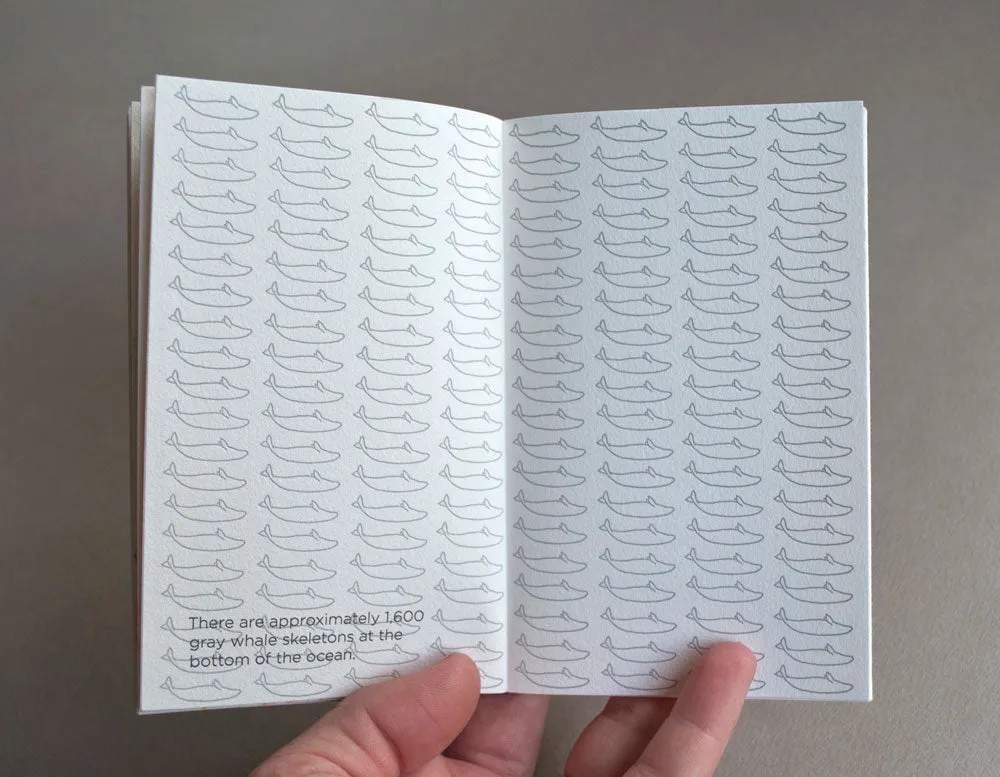 There are approximately 1,600
gray whale skeletons at the
bottom of the ocean.